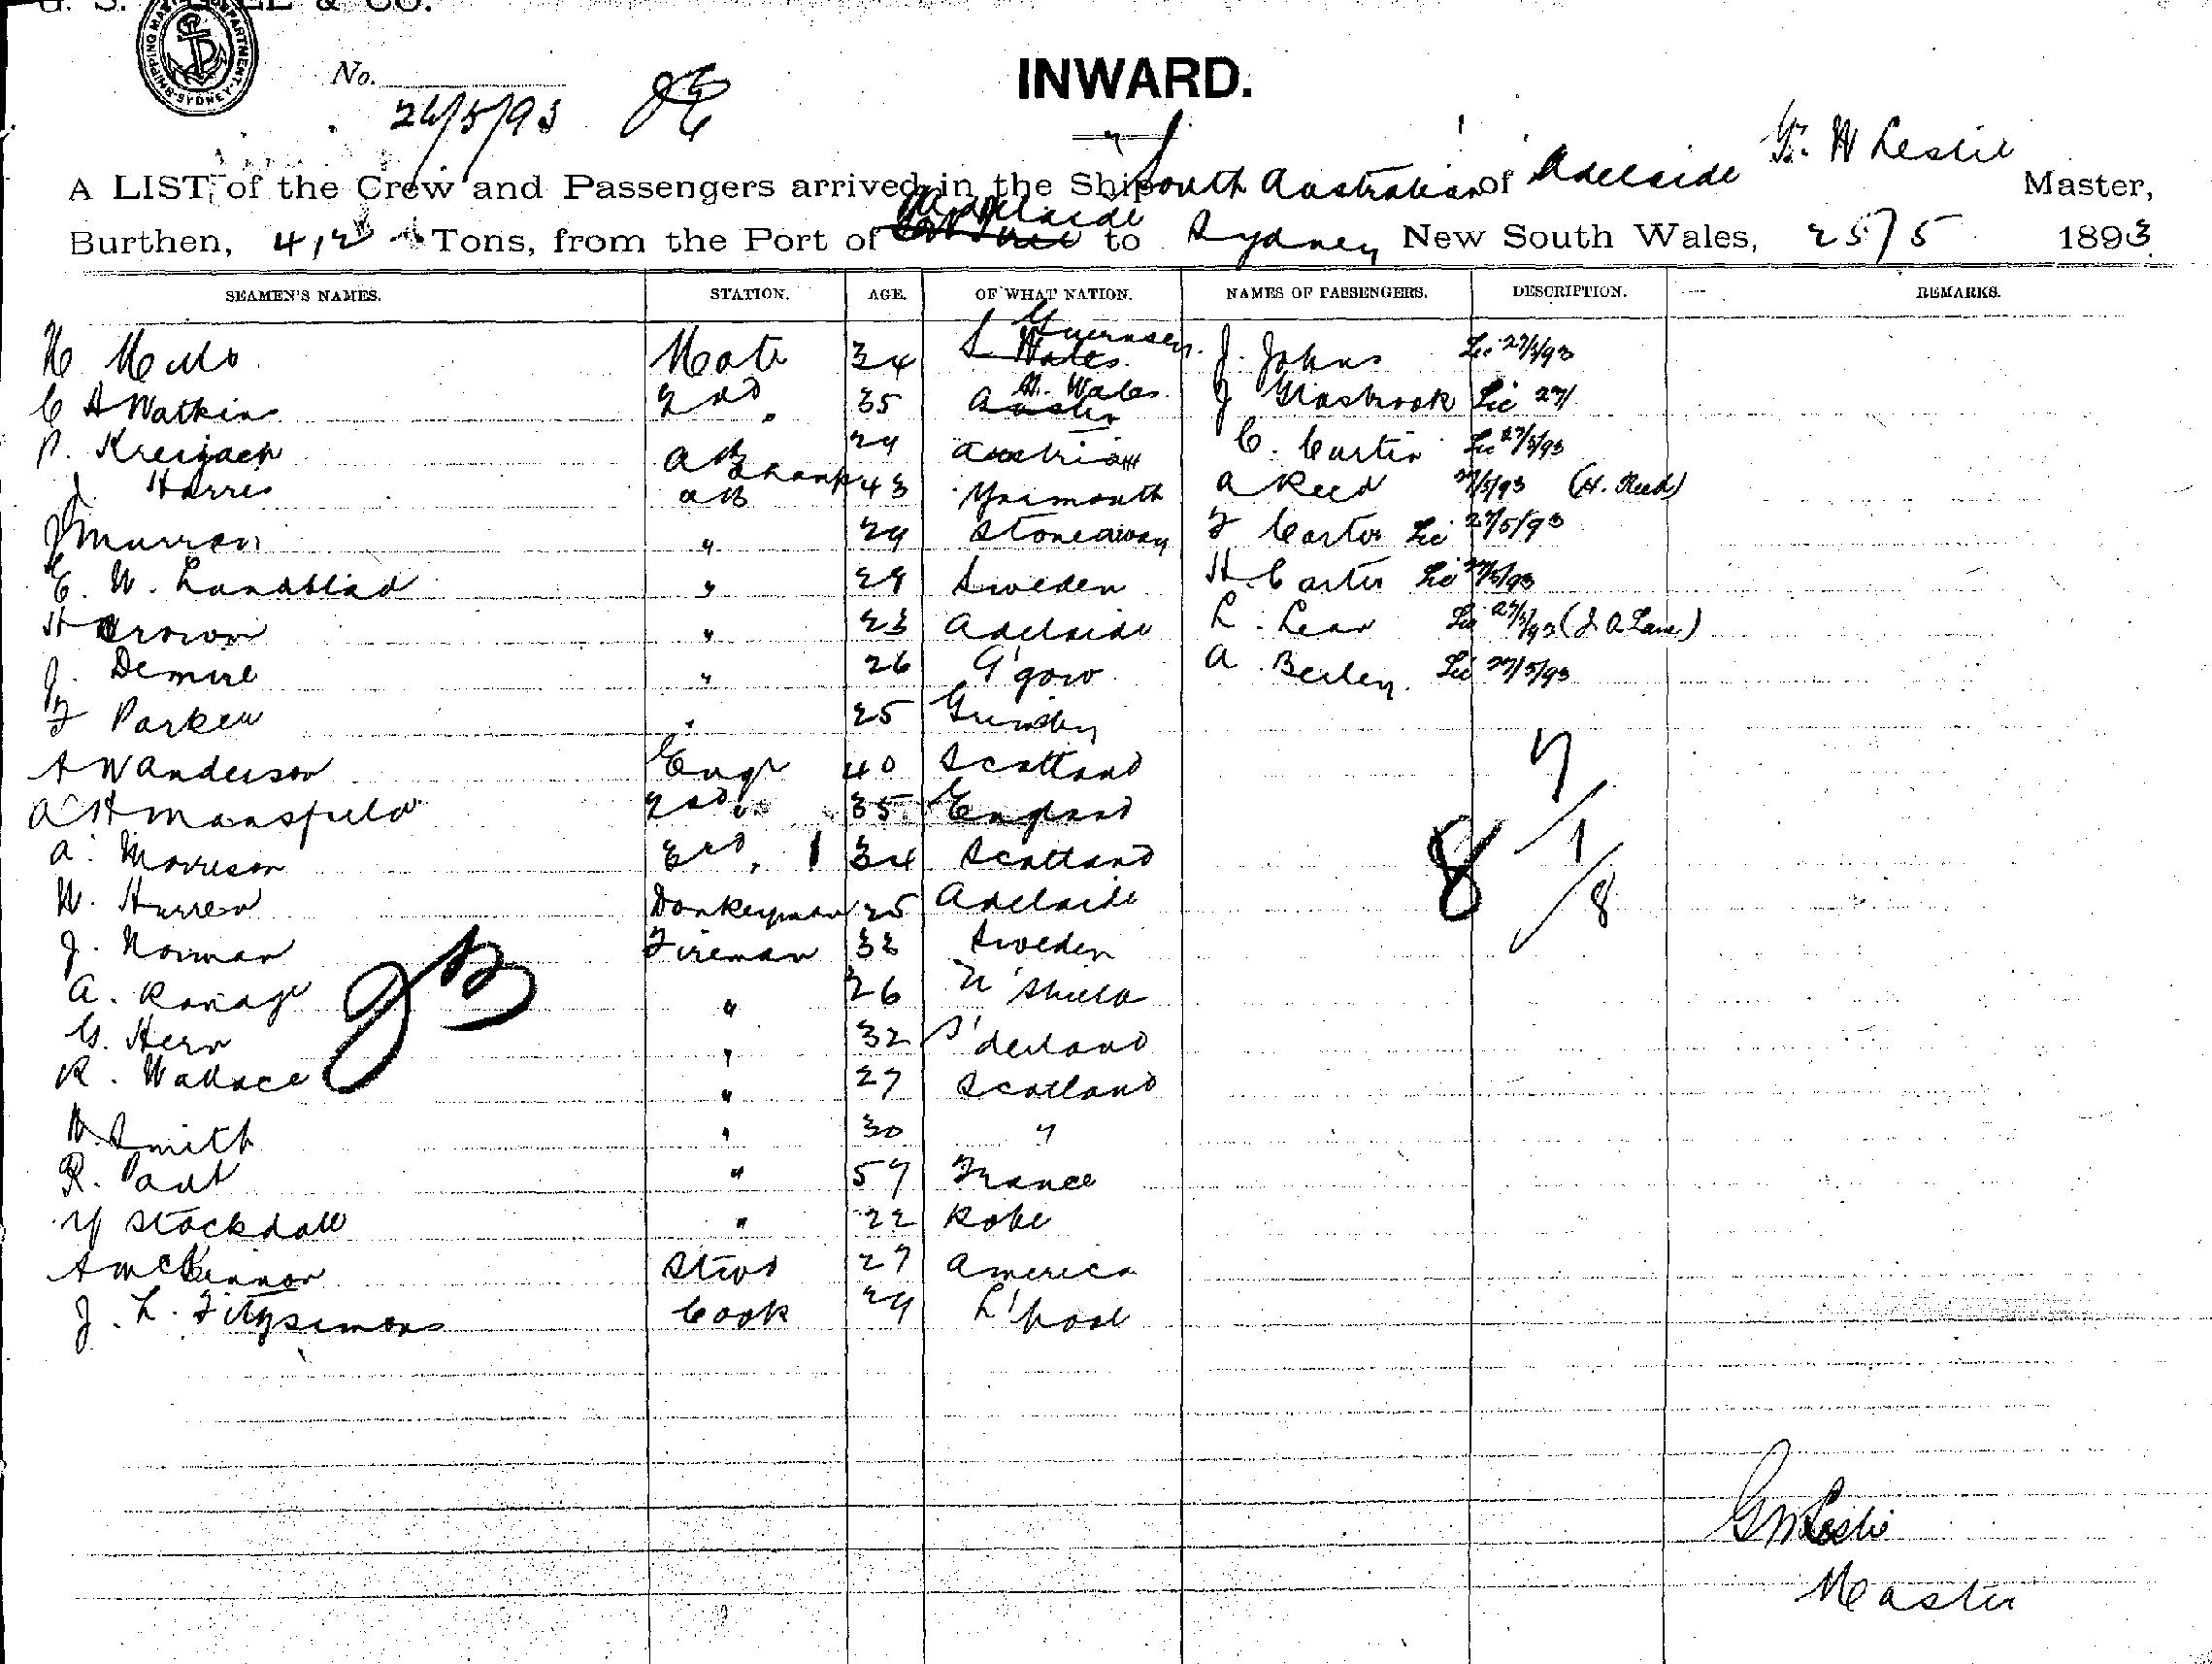 & CO.
SHIPPING MASTER'S DEPARTMENT · SYDNEY
No.
26/5/93
INWARD.
G. W Leslie
A LIST, of the Crew and Passengers arrived in the Ship South Australian of Adelaide Master,
Adelaide
Burthen, 412 Tons, from the Port of to Sydney New South Wales, 25/5 1893
SEAMEN'S NAMES. STATION. AGE. OF WHAT NATION. NAMES OF PASSENGERS. DESCRIPTION. REMARKS.
Guernsey
Mate 34 S. Wales J. Johns Lic 27/5/93
N. Wales
C A Watkins 2nd 35 Auster J Glasbrook Lic 27/
P. 29 Austria C. Curtin Lic 27/5/93
J. Harris AB 43 Yarmouth A Reed 27/5/93 (H. Reed)
J Murray " 29 Stoneaway F Carter Lic 27/5/93
E. W. Lundblad " 29 Sweden H. Carter Lic 27/5/93
H Brown " 23 Adelaide L. Lean Lic 27/5/93
J. " 26 G'gow A. Lic 27/5/93
F Parker " 25 Grimsby
A W Anderson Engr 40 Scotland
A H Mansfield 2nd " 35 England
A. Morrison 3rd " 34 Scotland
W. Hurren Donkeyman 25 Adelaide
J. Norman Fireman 33 Sweden
A. Ramage " 26 N'Shield
G. Hern " 32 S'derland
R. Wallace " 27 Scotland
Smith " 30 "
R. Paul " 57 France
Stockdale " 22 Robe
A McKinnon Stwd 27 America
J. L. Fitzsimons Cook 29 L'pool
7
1
8 8
G W Leslie
Master